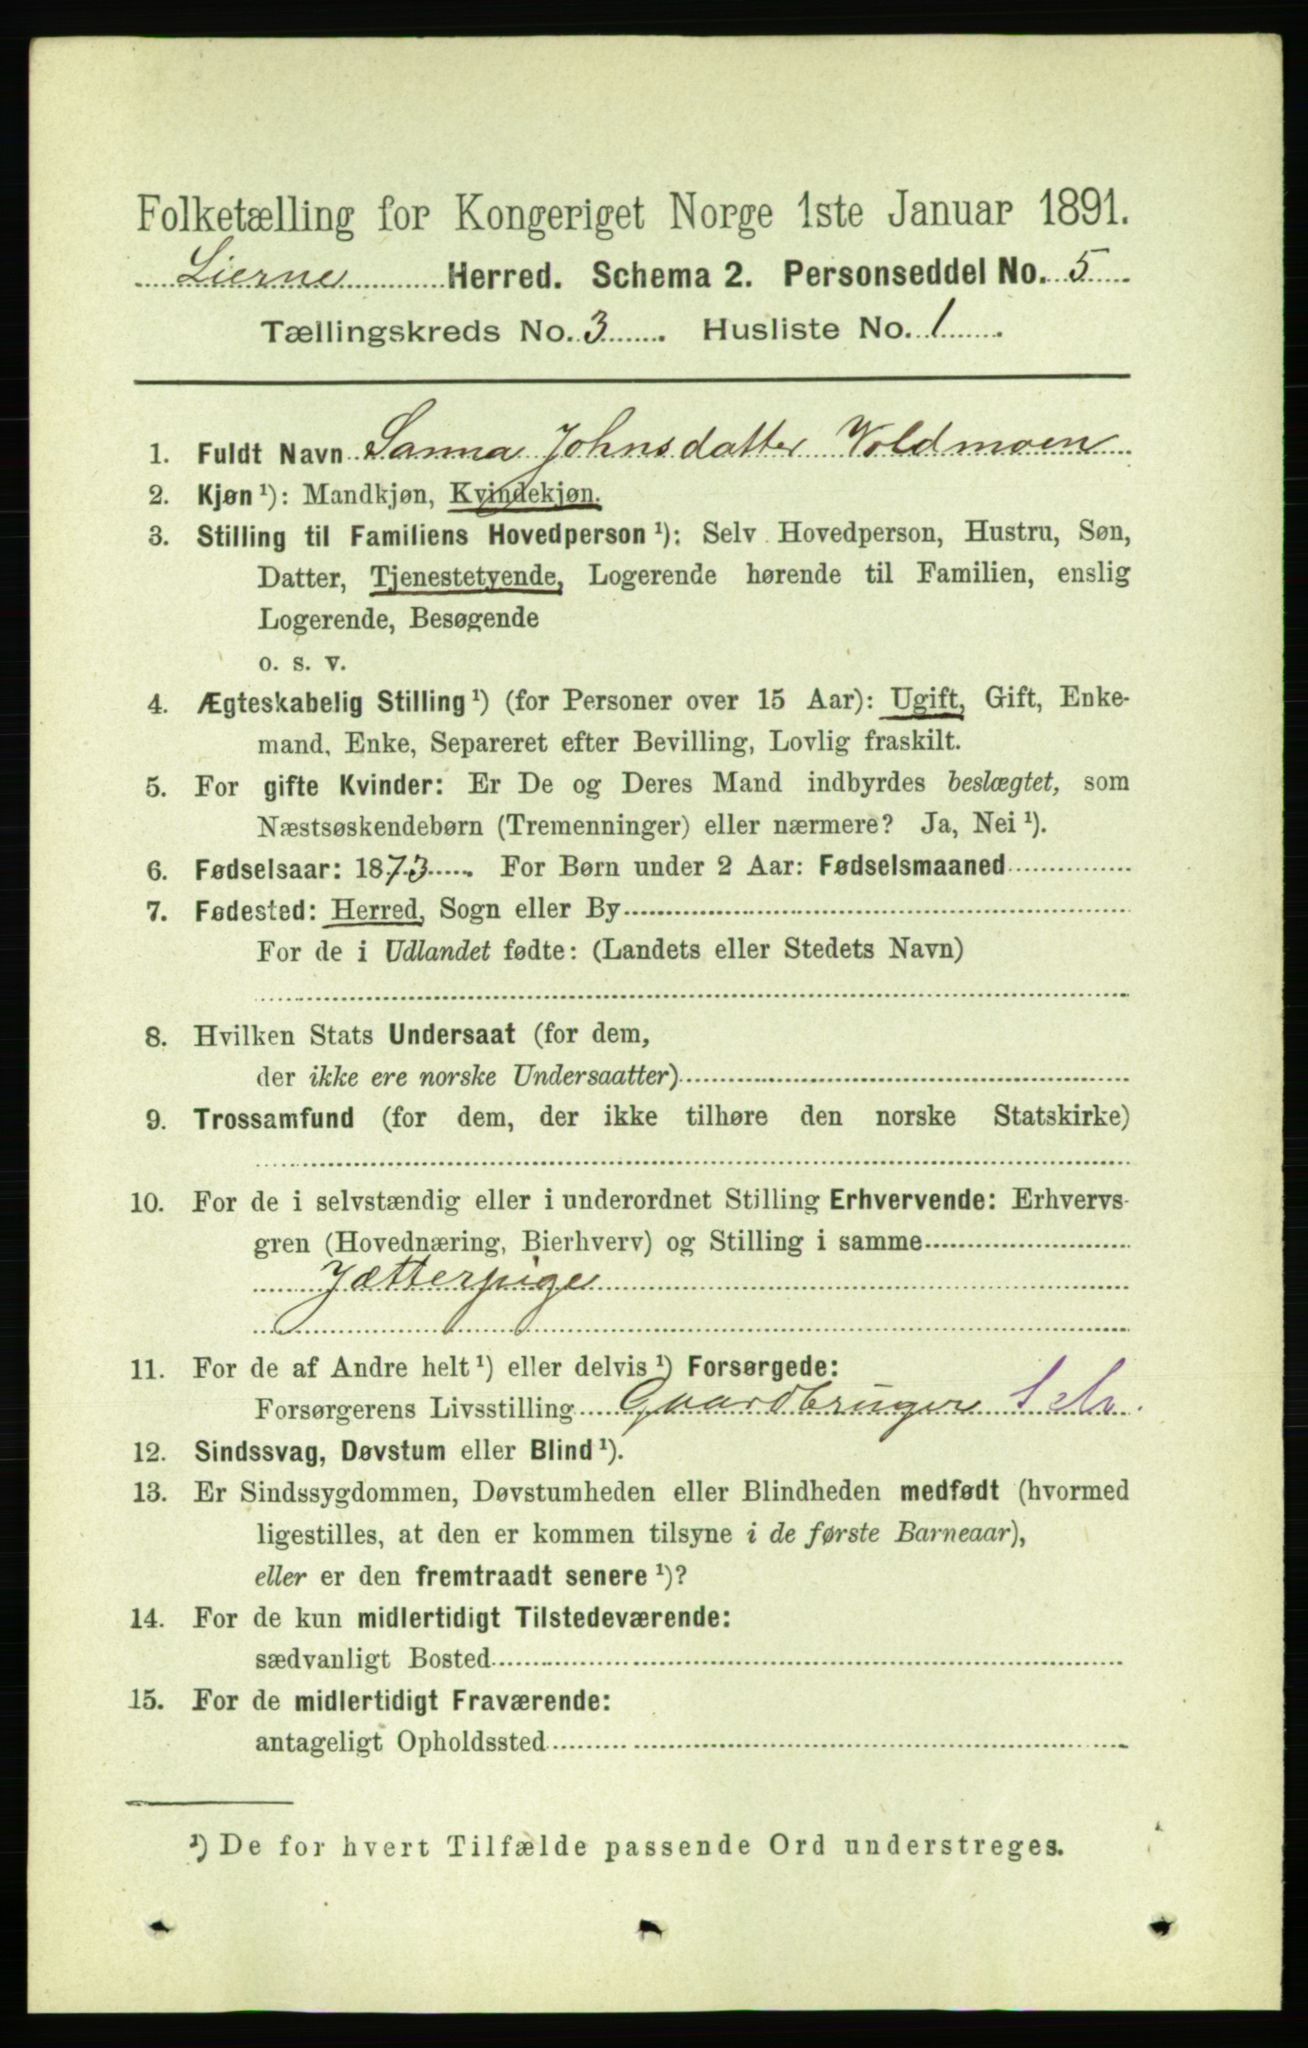 Folketælling for Kongeriget Norge 1ste Januar 1891.
Lierne Herred. Schema 2. Personseddel No. 5
Tællingskreds No. 3. Husliste No. 1
1. Fuldt Navn Sanna Johnsdatter Voldmoen
2. Kjøn ¹): Mandkjøn, Kvindekjøn.
3. Stilling til Familiens Hovedperson ¹): Selv Hovedperson, Hustru, Søn,
Datter, Tjenestetyende, Logerende hørende til Familien, enslig
Logerende, Besøgende
o. s. v.
4. Ægteskabelig Stilling ¹) (for Personer over 15 Aar): Ugift, Gift, Enke-
mand, Enke, Separeret efter Bevilling, Lovlig fraskilt.
5. For gifte Kvinder: Er De og Deres Mand indbyrdes beslægtet, som
Næstsøskendebørn (Tremenninger) eller nærmere? Ja, Nei ¹).
6. Fødselsaar: 1873. For Børn under 2 Aar: Fødselsmaaned
7. Fødested: Herred, Sogn eller By
For de i Udlandet fødte: (Landets eller Stedets Navn)
8. Hvilken Stats Undersaat (for dem,
der ikke ere norske Undersaatter)
9. Trossamfund (for dem, der ikke tilhøre den norske Statskirke)
10. For de i selvstændig eller i underordnet Stilling Erhvervende: Erhvervs-
gren (Hovednæring, Bierhverv) og Stilling i samme
Jætterpige
11. For de af Andre helt ¹) eller delvis ¹) Forsørgede:
Forsørgerens Livsstilling Gaardbruger Selv.
12. Sindssvag, Døvstum eller Blind ¹).
13. Er Sindssygdommen, Døvstumheden eller Blindheden medfødt (hvormed
ligestilles, at den er kommen tilsyne i de første Barneaar),
eller er den fremtraadt senere ¹)?
14. For de kun midlertidigt Tilstedeværende:
sædvanligt Bosted
15. For de midlertidigt Fraværende:
antageligt Opholdssted
¹) De for hvert Tilfælde passende Ord understreges.